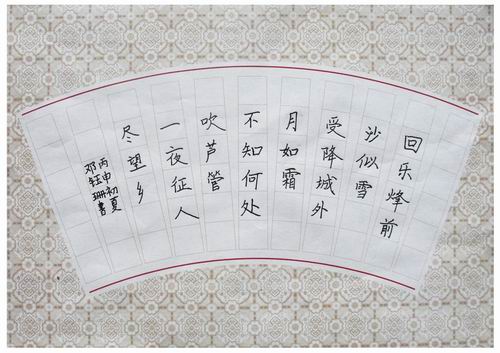 回乐烽前
沙似雪
受降城外
月如霜
不知何处
吹芦管
一夜征人
尽望乡
丙申初夏
邓钰珊书